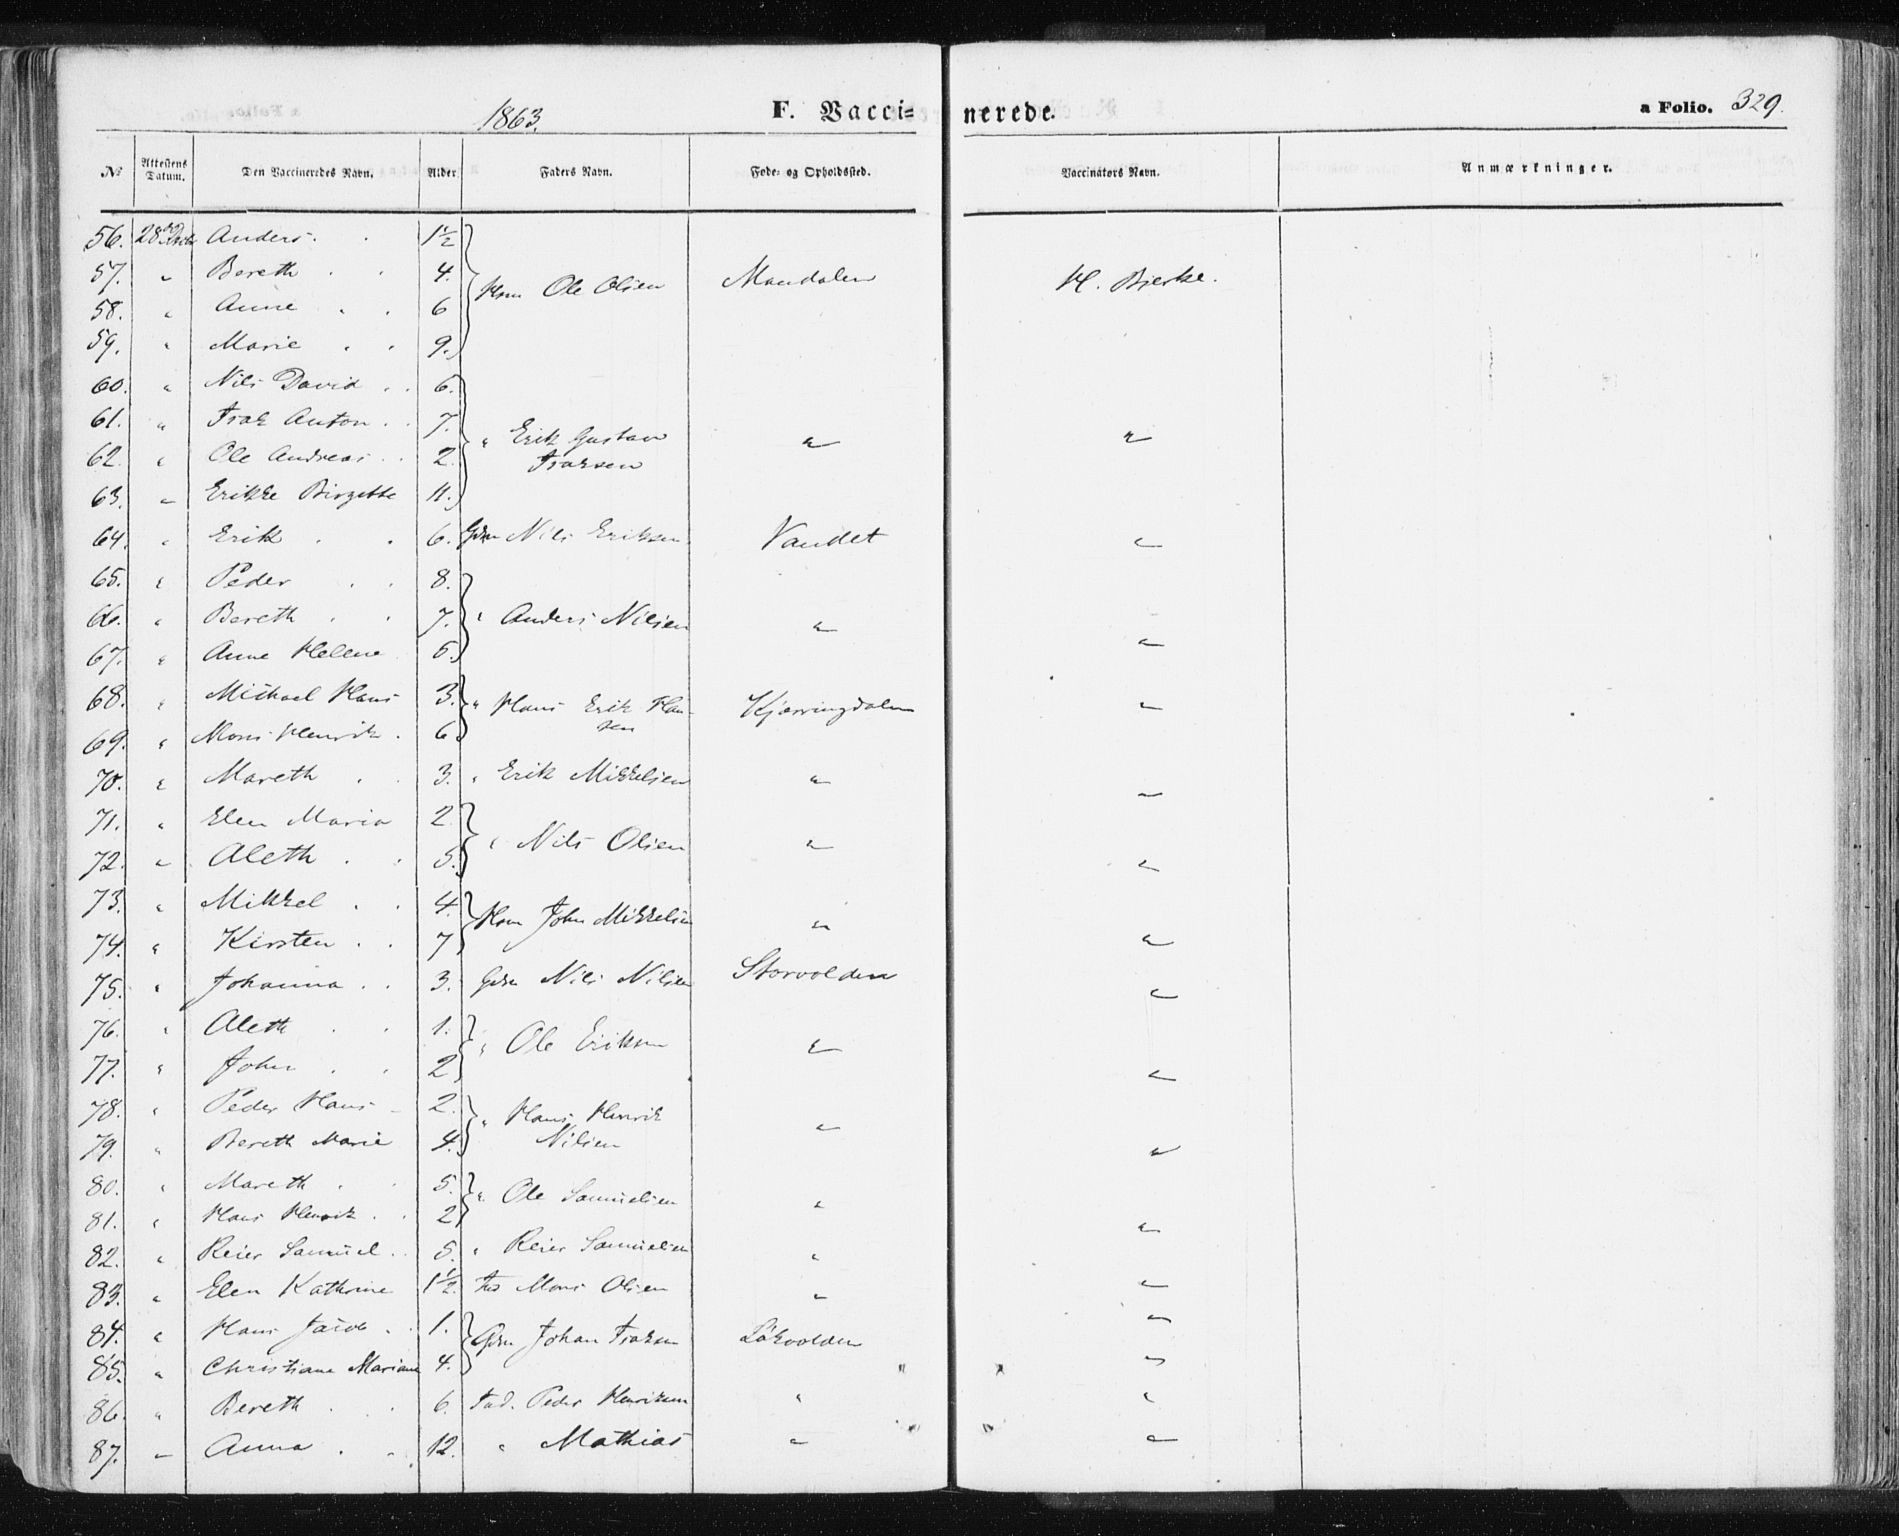 1863. F. Vacci= nerede. a Folio. 329.
No Attestens Datum. Den Vaccineredes Navn. Alder. Faders Navn. Føde- og Opholdssted. Vaccinators Navn. Anmærkninger.
56. 28de Anders. 1½
57. " Bereth 4. Hsm Ole Olsen Mandalen H. Bjerke.
58. " Anne 6
59. " Marie 9.
60. " Nils David 6.
61. " Isak Anton 7. " Erik Gustav " "
62. " Ole Andreas 2. Isaksen
63. " Erikke Birgitte 11.
64. " Erik 6. Gdm Nils Eriksen Vandet "
65. " Peder 8.
66. " Bereth 7. " Anders Nilsen "
67. " Anne Helene 5. "
68. " Michael Hans 3. " Hans Erik Han- Kjerringdalen "
69. " Mons Henrik 6. sen
70. " Mareth 3. " Erik Mikkelsen " "
71. " Elen Maria 2.
72. " Aleth 5. " Nils Olsen " "
73. " Mikkel 4. Hsm John Mikkelsen "
74. " Kirsten 7 "
75. " Johanna 3. Gdm Nils Nilsen Storvolden "
76. " Aleth 1. " Ole Eriksen "
77. " John 2 "
78. " Peder Hans 2. " Hans Henrik "
79. " Bereth Marie 4. Nilsen "
80. " Mareth 5. " Ole Samuelsen "
81. " Hans Henrik 2 "
82. " Reier Samuel 5. " Reier Samuelsen "
83. " Elen Kathrine 1½. Mons Olsen " "
84. " Hans Jacob 1. Gdm Johan Isaksen Løkvolden "
85. " Christiane Mariane 4. "
86. " Bereth 6. Peder Henriksen " "
87. " Anna 12. " Mathias " "